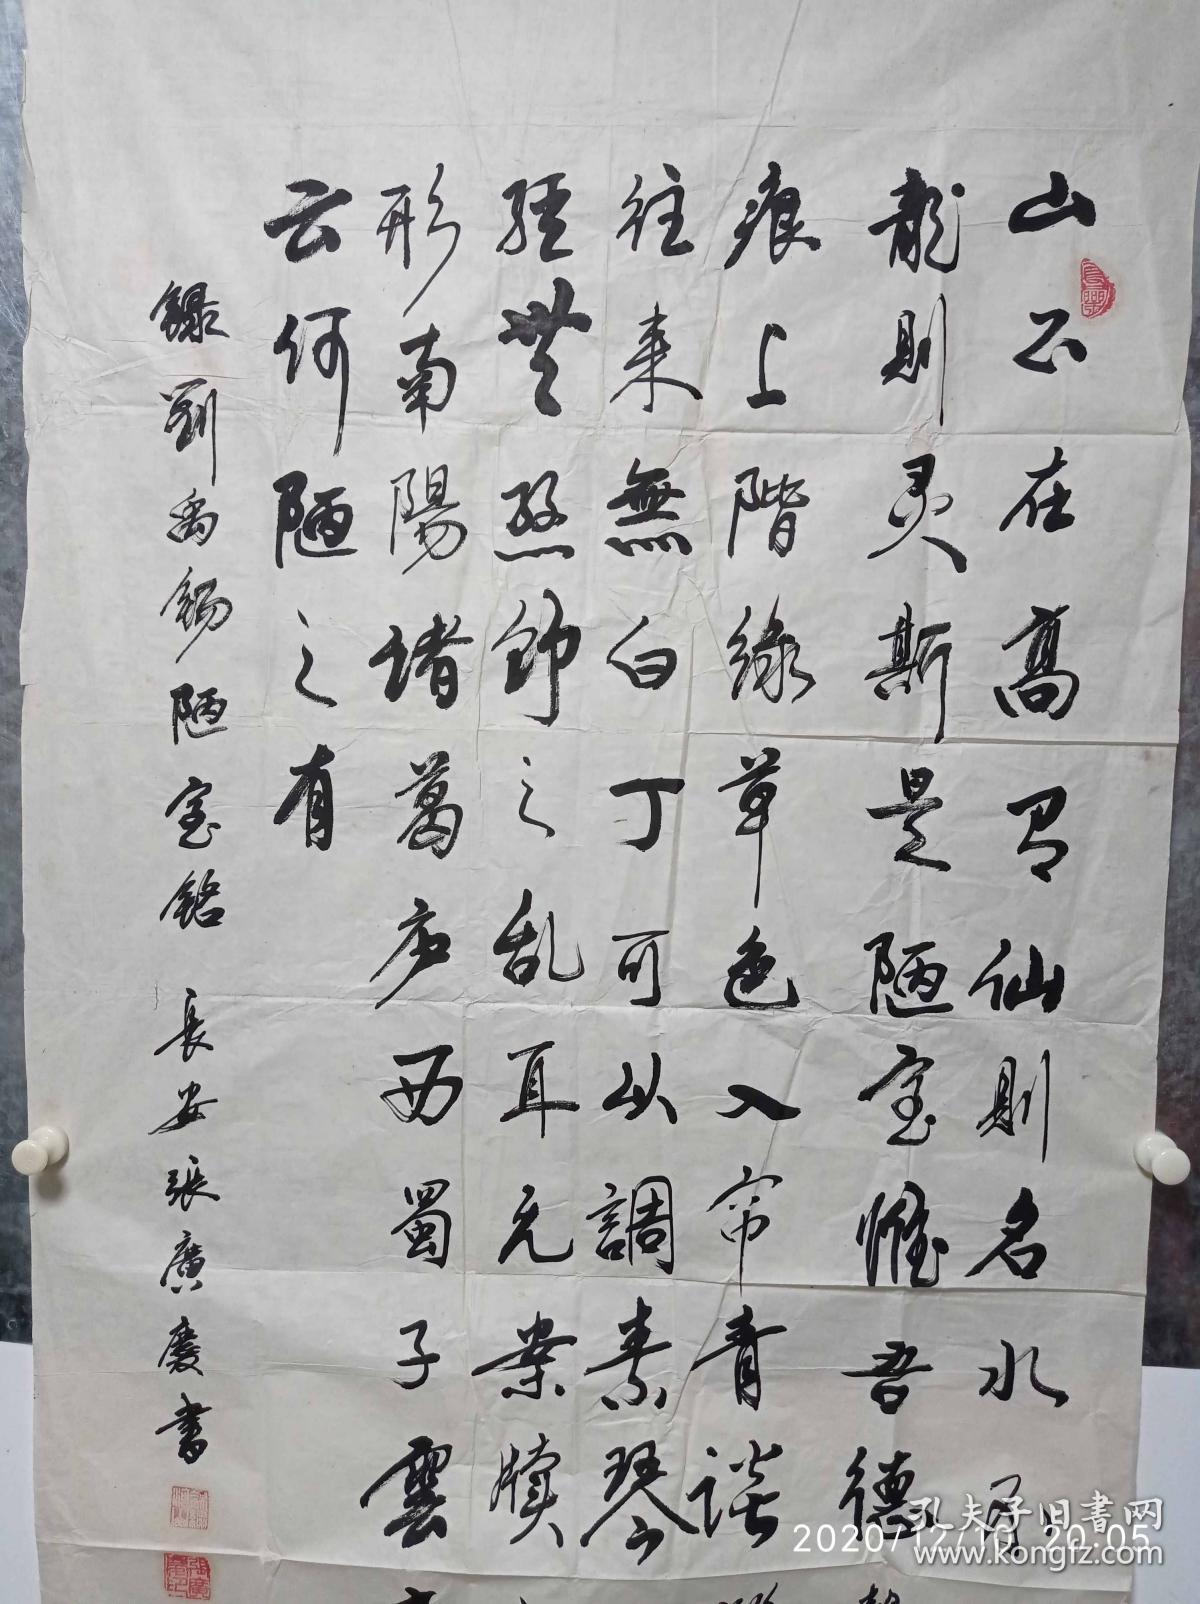 山不在高有仙则名水有
龍则灵斯是陋室惟吾德
痕上階緑草色入帘青談
往来無白丁可以調素琴
經無丝竹之乱耳无案牍
形南陽诸葛庐西蜀子雲
云何陋之有
録劉禹錫陋室銘 長安張廣慶書
2020/12/10 20:05
孔夫子旧书网
www.kongfz.com